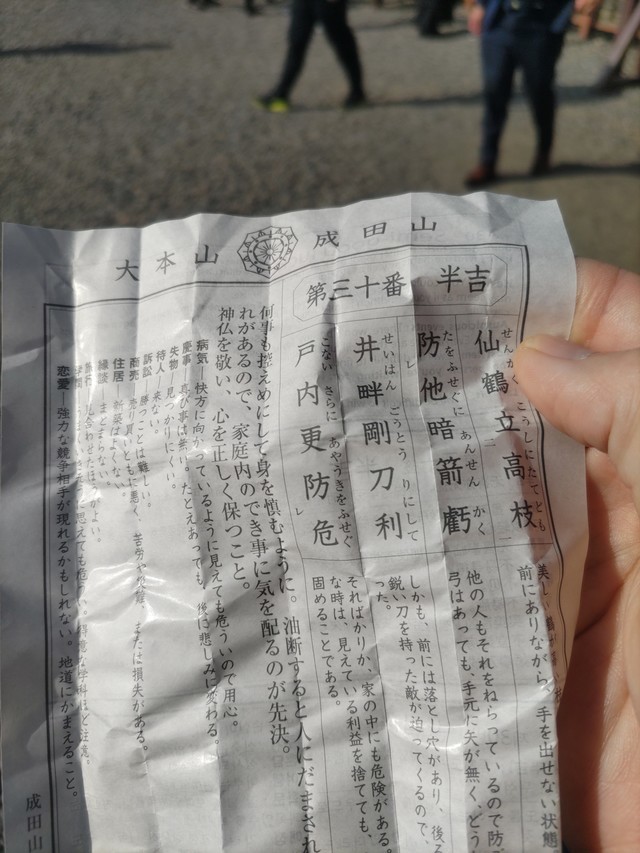 大本山 成田山
第三十番 半吉
仙鶴立高枝
こうしにたてども
防他暗箭虧
たをふせぐに あんせん かく
井畔剛刀利
せいはん ごうとう りにして
戸内更防危
こない さらに あやうきをふせぐ
前にありながら、手を出せない状態
他の人もそれをねらっているので防
弓はあっても、手元に矢が無く、どう
しかも、前には落とし穴があり、後ろ
鋭い刀を持った敵が迫ってくるので、
った。
そればかりか、家の中にも危険がある。
な時は、見えている利益を捨てても、
固めることである。
何事も控えめにして身を慎むように。油断すると人にだまされ
れがあるので、家庭内のでき事に気を配るのが先決。
神仏を敬い、心を正しく保つこと。
病気―快方に向かっているように見えても危ういので用心。
慶事―喜び事は無い。たとえあっても、後に悲しみに変わる。
失物―見つかりにくい。
待人―来ない。
訴訟―勝つことは難しい。
商売―売り買いともに悪く、または損失がある。
住居―新築はよくない。
縁談―まとまらない。
恋愛―強力な競争相手が現れるかもしれない。地道にかまえること。
成田山